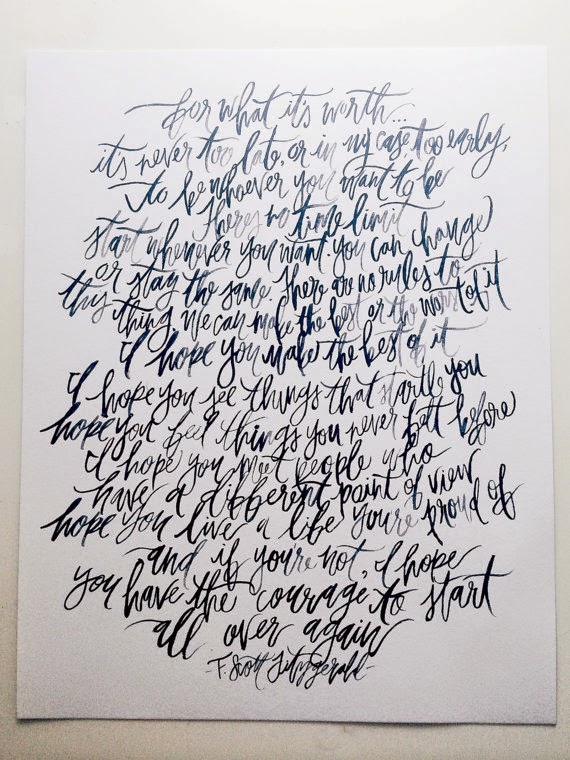 for what it's worth...
it's never too late, or in my case, too early,
to be whoever you want to be
There's no time limit
start whenever you want. you can change
or stay the same. There are no rules to
this thing, we can make the best or the worst of it
I hope you make the best of it
I hope you see things that startle you
hope you feel things you never felt before
I hope you meet people who
have a different point of view
hope you live a life you're proud of
and if you're not, I hope
you have the courage to start
all over again
-F. Scott Fitzgerald-